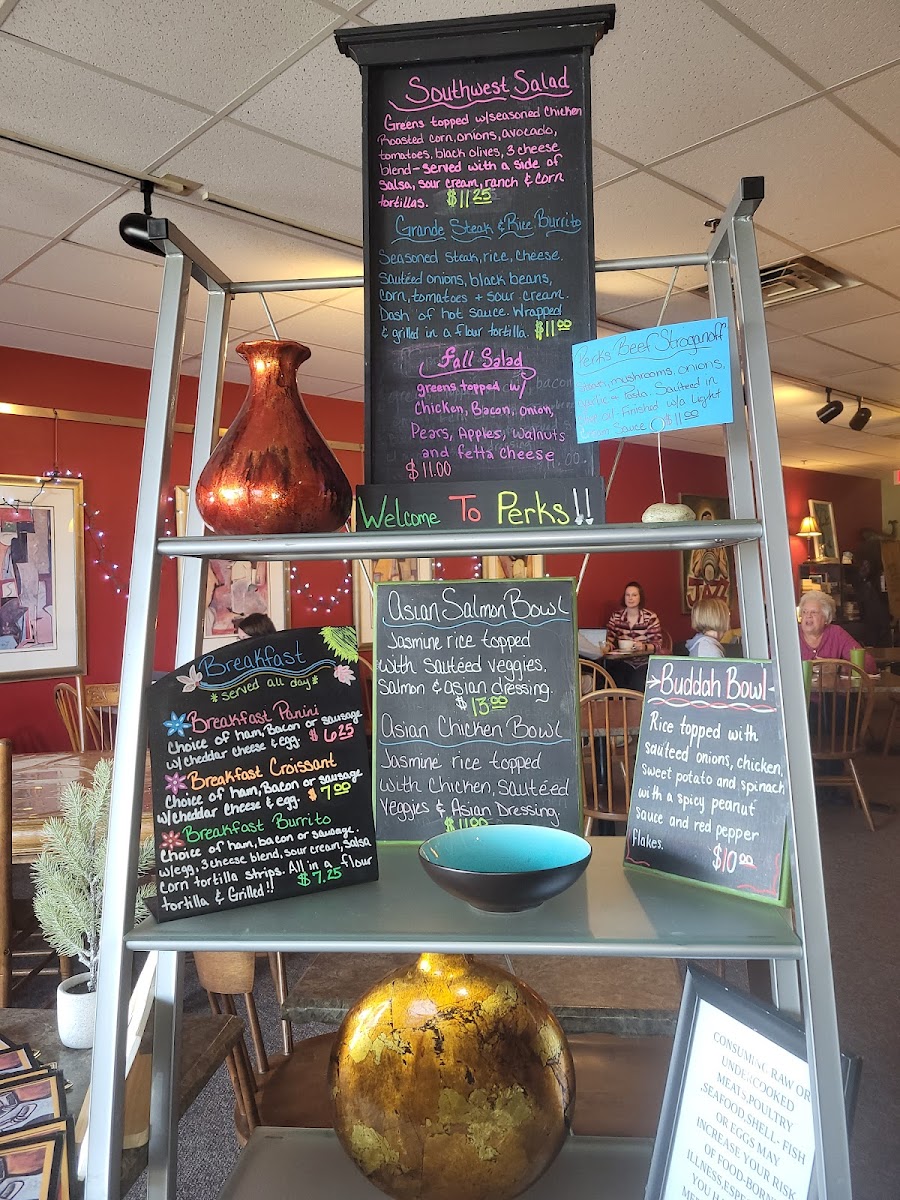 Southwest Salad
Greens topped w/seasoned chicken
Roasted corn, onions, avocado,
tomatoes, black olives, 3 cheese
blend - served with a side of
salsa, sour cream, ranch & corn
tortillas. $11.25
Grande Steak & Rice Burrito
Seasoned steak, rice, cheese.
Sautéed onions, black beans,
corn, tomatoes + sour cream.
Dash of hot sauce. Wrapped
& grilled in a flour tortilla. $11.00
Fall Salad
greens topped w/
Chicken, Bacon, Onion,
Pears, Apples, Walnuts
and fetta cheese
$11.00
Perks Beef Stroganoff
mushrooms, onions,
pasta. Sautéed in
Finished w/a light
Sauce $11.00
Welcome To Perks!!
Breakfast
*served all day*
Breakfast Panini
Choice of ham, Bacon or sausage
w/cheddar cheese & egg. $6.25
Breakfast Croissant
Choice of ham, Bacon or sausage
w/cheddar cheese & egg. $7.00
Breakfast Burrito
Choice of ham, bacon or sausage.
w/egg, 3 cheese blend, sour cream, salsa
corn tortilla strips. All in a flour
tortilla & Grilled!! $7.25
Asian Salmon Bowl
Jasmine rice topped
with sautéed veggies,
Salmon & asian dressing.
$13.00
Asian Chicken Bowl
Jasmine rice topped
with Chicken, sautéed
veggies & Asian Dressing.
$11.00
Buddah Bowl
Rice topped with
sautéed onions, chicken,
sweet potato and spinach
with a spicy peanut
sauce and red pepper
flakes.
$10.00
JAZZ
CONSUMING RAW OR
UNDERCOOKED
MEATS,POULTRY
,SEAFOOD,SHELL- FISH
OR EGGS MAY
INCREASE YOUR RISK
OF FOOD-BORNE
ILLNESS,ESPE
YOU HA